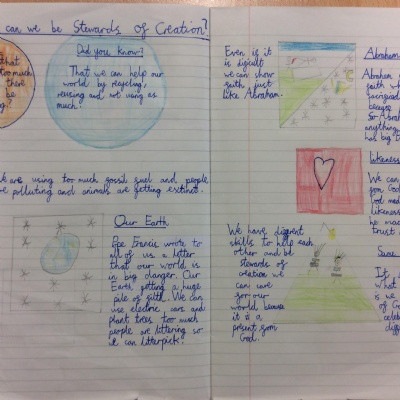 can we be Stewards of Creation?
that
too much
there
be
?
Did you Know?
That we can help our
world by recycling,
reusing and not using as
much.
are using too much fossil fuel and people
polluting and animals are getting extinct.
Our Earth
Pope Francis wrote to
all of us a letter
that our world is
in big danger. Our
Earth getting a huge
pile of filth. We can
use electric cars and
plant trees too much
people are littering so
can litterpick.
Even if it
is dificult
we can show
faith just
like Abraham.
We have diffrent
skills to help each
other and be
stewards of
creation we
can care
for our
world because
it is a
present from
God.
Abraham
Abraham
faith wh
sacrificed
because
So Abraha
anything
has big
Likeness
We can
from God
God mad
likeness
he mad
trust
Same
If
What
is we
of Go
celeb
diff